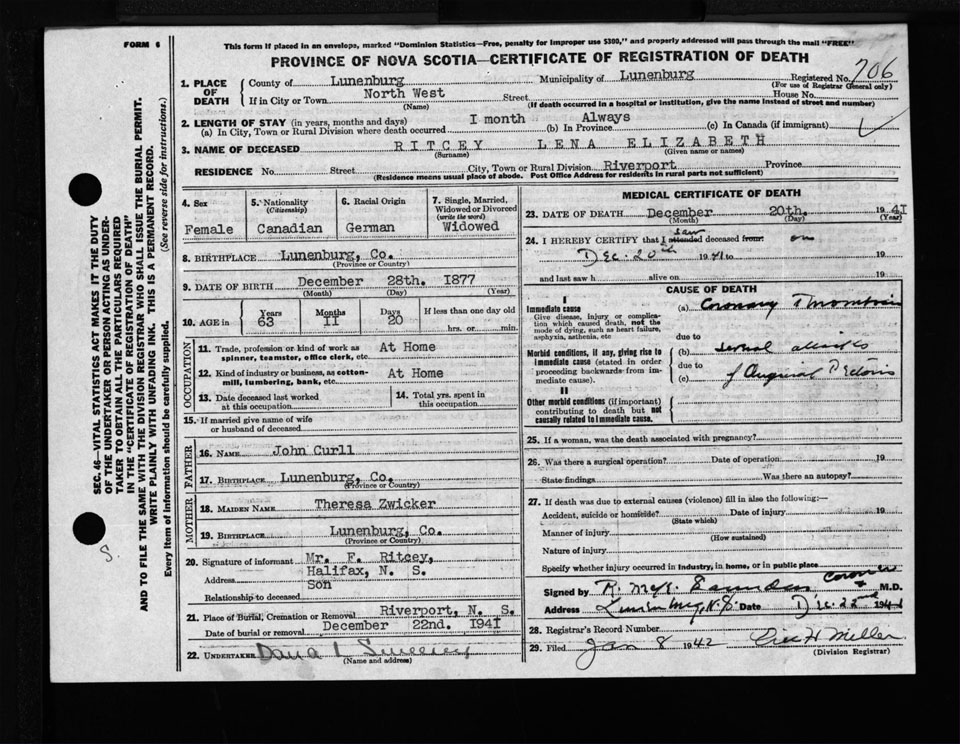 FORM 6
This form if placed in an envelope, marked "Dominion Statistics—Free, penalty for improper use $300," and properly addressed will pass through the mail "FREE"
PROVINCE OF NOVA SCOTIA—CERTIFICATE OF REGISTRATION OF DEATH
SEC. 46—VITAL STATISTICS ACT MAKES IT THE DUTY
OF THE UNDERTAKER OR PERSON ACTING AS UNDER-
TAKER TO OBTAIN ALL THE PARTICULARS REQUIRED
IN THE "CERTIFICATE OF REGISTRATION OF DEATH"
AND TO FILE THE SAME WITH THE DIVISION REGISTRAR WHO SHALL ISSUE THE BURIAL PERMIT.
WRITE PLAINLY WITH UNFADING INK. THIS IS A PERMANENT RECORD.
Every item of information should be carefully supplied. (See reverse side for instructions.)
S.
1. PLACE OF DEATH
County of Lunenburg Municipality of Lunenburg Registered No. 706
(For use of Registrar General only)
If in City or Town North West Street House No.
(Name) (If death occurred in a hospital or institution, give the name instead of street and number)
2. LENGTH OF STAY (in years, months and days)
(a) In City, Town or Rural Division where death occurred I month (b) In Province Always (c) In Canada (if immigrant)
3. NAME OF DECEASED RITCEY LENA ELIZABETH
(Surname) (Given name or names)
RESIDENCE No. Street City, Town or Rural Division Riverport Province
(Residence means usual place of abode. Post Office Address for residents in rural parts not sufficient)
4. Sex
Female
5. Nationality
(Citizenship)
Canadian
6. Racial Origin
German
7. Single, Married, Widowed or Divorced
(write the word)
Widowed
8. BIRTHPLACE Lunenburg, Co.
(Province or Country)
9. DATE OF BIRTH December 28th. 1877
(Month) (Day) (Year)
10. AGE in Years 63 Months II Days 20 If less than one day old
hrs. or min.
OCCUPATION
11. Trade, profession or kind of work as spinner, teamster, office clerk, etc. At Home
12. Kind of industry or business, as cotton-mill, lumbering, bank, etc. At Home
13. Date deceased last worked at this occupation
14. Total yrs. spent in this occupation
15. If married give name of wife or husband of deceased
FATHER
16. NAME John Curll
17. BIRTHPLACE Lunenburg Co.
(Province or Country)
MOTHER
18. MAIDEN NAME Theresa Zwicker
19. BIRTHPLACE Lunenburg, Co.
(Province or Country)
20. Signature of informant Mr. F. Ritcey,
Address Halifax, N. S.
Relationship to deceased Son
21. Place of Burial, Cremation or Removal Riverport, N. S.
Date of burial or removal December 22nd. 194I
22. UNDERTAKER Dana L Sweeney
(Name and address)
MEDICAL CERTIFICATE OF DEATH
23. DATE OF DEATH December 20th. 194I
(Month) (Day) (Year)
24. I HEREBY CERTIFY that I attended saw deceased from: on
Dec. 20th 1941 to 19
and last saw h alive on 19
CAUSE OF DEATH
I
Immediate cause
Give disease, injury or complication which caused death, not the mode of dying, such as heart failure, asphyxia, asthenia, etc
(a) Coronary Thrombosis
due to
Morbid conditions, if any, giving rise to immediate cause (stated in order proceeding backwards from immediate cause).
(b) several attacks
due to
(c) of Anginal Pectoris
II
Other morbid conditions (if important) contributing to death but not causally related to immediate cause.
25. If a woman, was the death associated with pregnancy?
26. Was there a surgical operation? Date of operation 19
State findings Was there an autopsy?
27. If death was due to external causes (violence) fill in also the following:—
Accident, suicide or homicide? Date of injury 19
(State which)
Manner of injury
(How sustained)
Nature of injury
Specify whether injury occurred in industry, in home, or in public place
Signed by R. McK. Saunders Coroner + M.D.
Address Lunenburg, N.S. Date Dec. 22nd 1941
28. Registrar's Record Number
29. Filed Jan 8 1942 Miller
(Division Registrar)